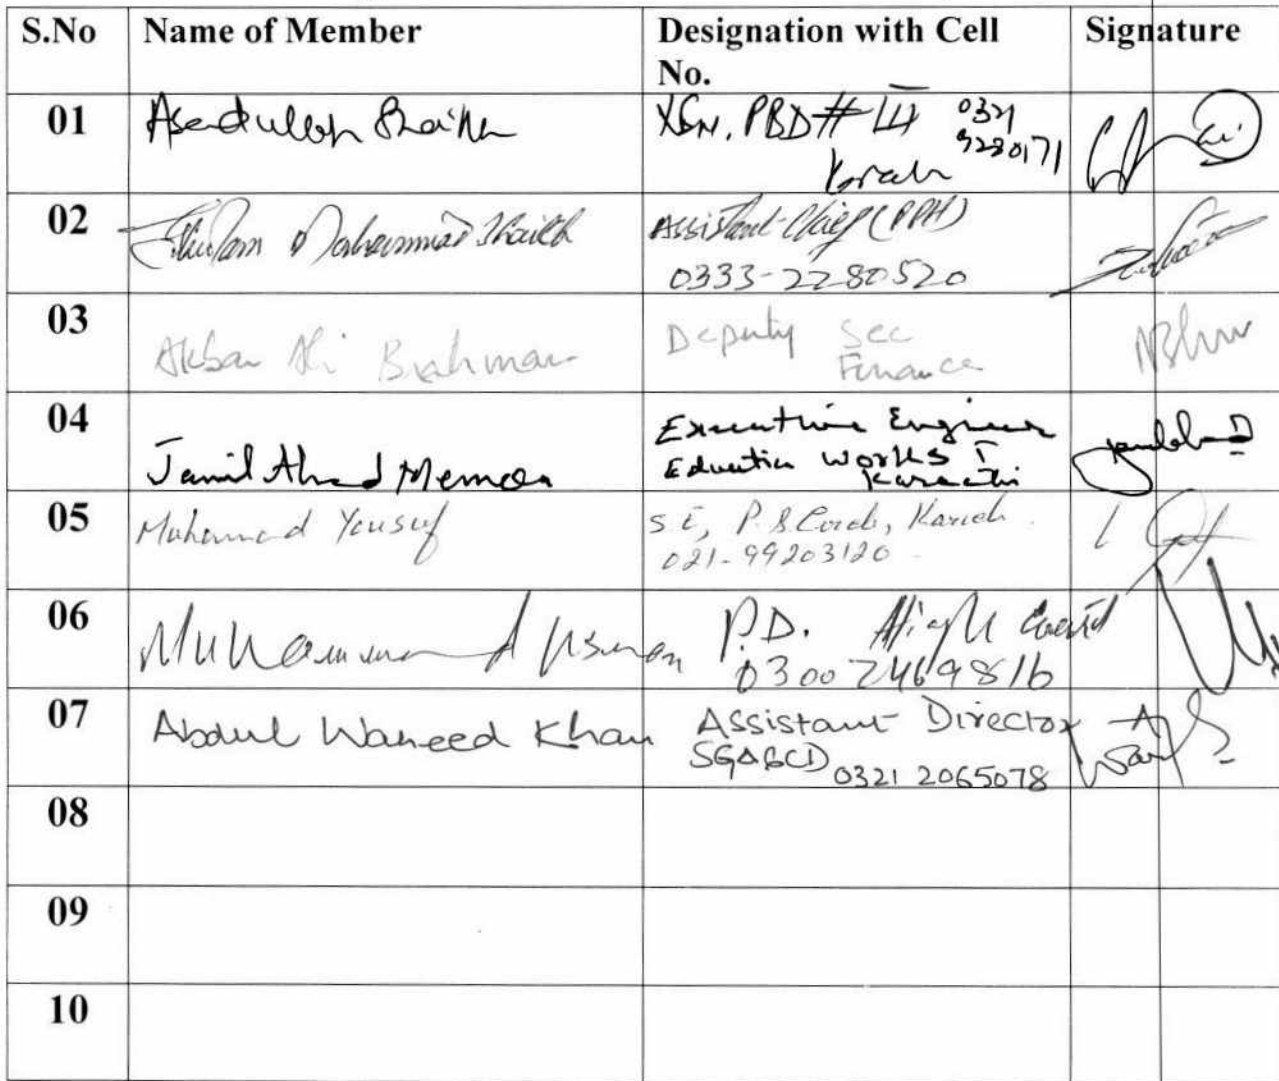 S.No Name of Member Designation with Cell No. Signature
01 Asadullah Shaikh XEN. PBD # III 0321
9280171
02 Ghulam Mohammad Shaikh Assistant Chief (PPH)
0333-2280520
03 Akbar Ali Brahman Deputy Sec
Finance
04 Jamil Ahmed Memon Executive Engineer
Education Works I
Karachi
05 Muhammad Yousuf S E, P.
021-99203120
06 Muhammad Usman P.D. High
0300 2469816
07 Abdul Waheed Khan Assistant Director
SGA&CD 0321 2065078
08
09
10